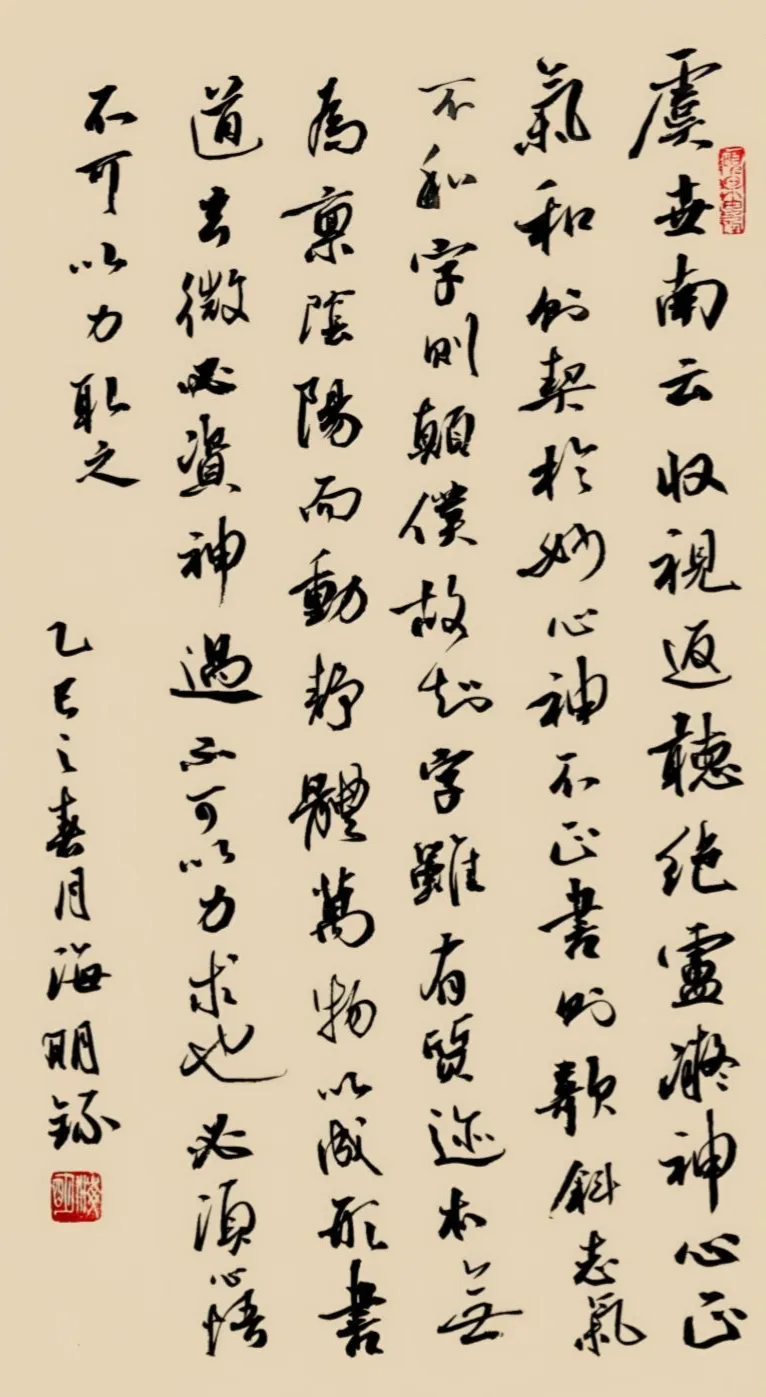 虞世南云收視返聽絕慮凝神心正
氣和則契於妙心神不正書則欹斜志氣
不和字則顛僕故知字雖有質迹本無
為稟陰陽而動靜體萬物以成形書
道玄微必資神遇不可以力求也必須心悟
不可以力取之
乙巳之春月海明錄
海明